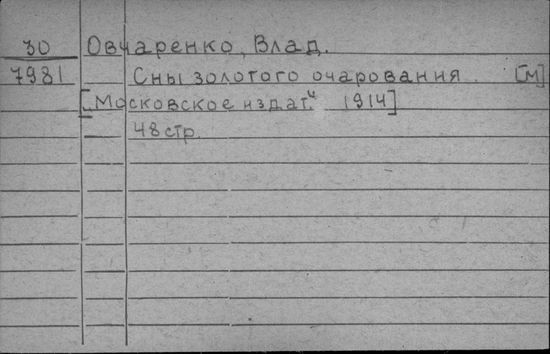 30 Овчаренко, Влад.
7981 Сны золотого очарования. [М]
[„Московское издат“ 1914]
48 стр.